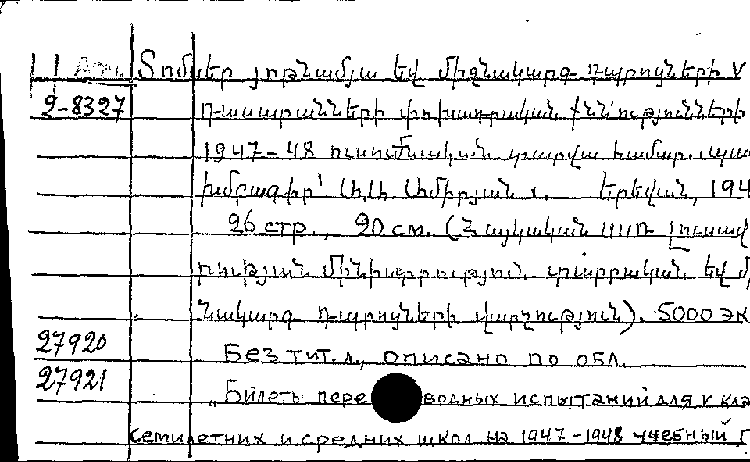 Տոմսեր յոթնամյա եվ միջնակարգ դպրոցների V
2-8327 դասարանների փոխադրական քննությունների
1947-48 ուսումնական տարվա համար. պատ
խմբագիր՝ Ա.Ա. Ամիրյան. Երեվան, 194
26 стр., 20 см. (Հայկական ՍՍՌ Լուսավ
րության Մինիստրություն. տարրական եվ մ
նակարգ դպրոցների վարչություն). 5000 эк
27920 Без тит. л., описано по обл.
27921 „Билеты пере водных испытаний для V кла
семилетних и средних школ на 1947-1948 учебный г